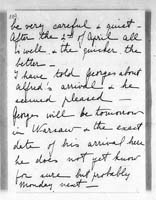 be very careful & quiet
After the 2nd of April all
is well & the quicker the
better —
I have told Georges about
Alfred's arrival & he
seemed pleased —
Georges will be tomorrow
in Warsaw & the exact
date of his arrival here
he does not yet know
for sure but probably
Monday next —